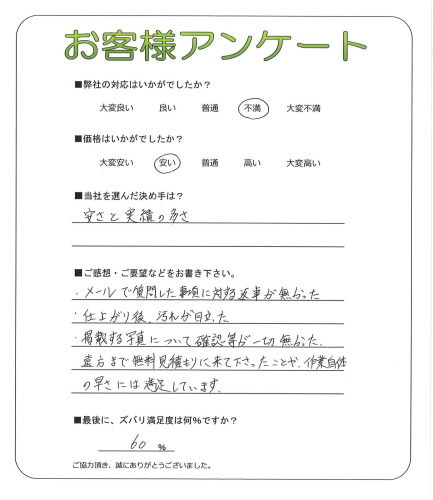 お客様アンケート
■弊社の対応はいかがでしたか?
大変良い 良い 普通 不満 大変不満
■価格はいかがでしたか?
大変安い 安い 普通 高い 大変高い
■当社を選んだ決め手は?
安さと実績の多さ
■ご感想・ご要望などをお書き下さい。
・メールで質問した事項に対する返事が無かった
・仕上がり後、汚れが目立った
・掲載する写真について確認等が一切無かった、
遠方まで無料見積もりに来て下さったことや、作業自体
の早さには満足しています。
■最後に、ズバリ満足度は何%ですか?
60 %
ご協力頂き、誠にありがとうございました。